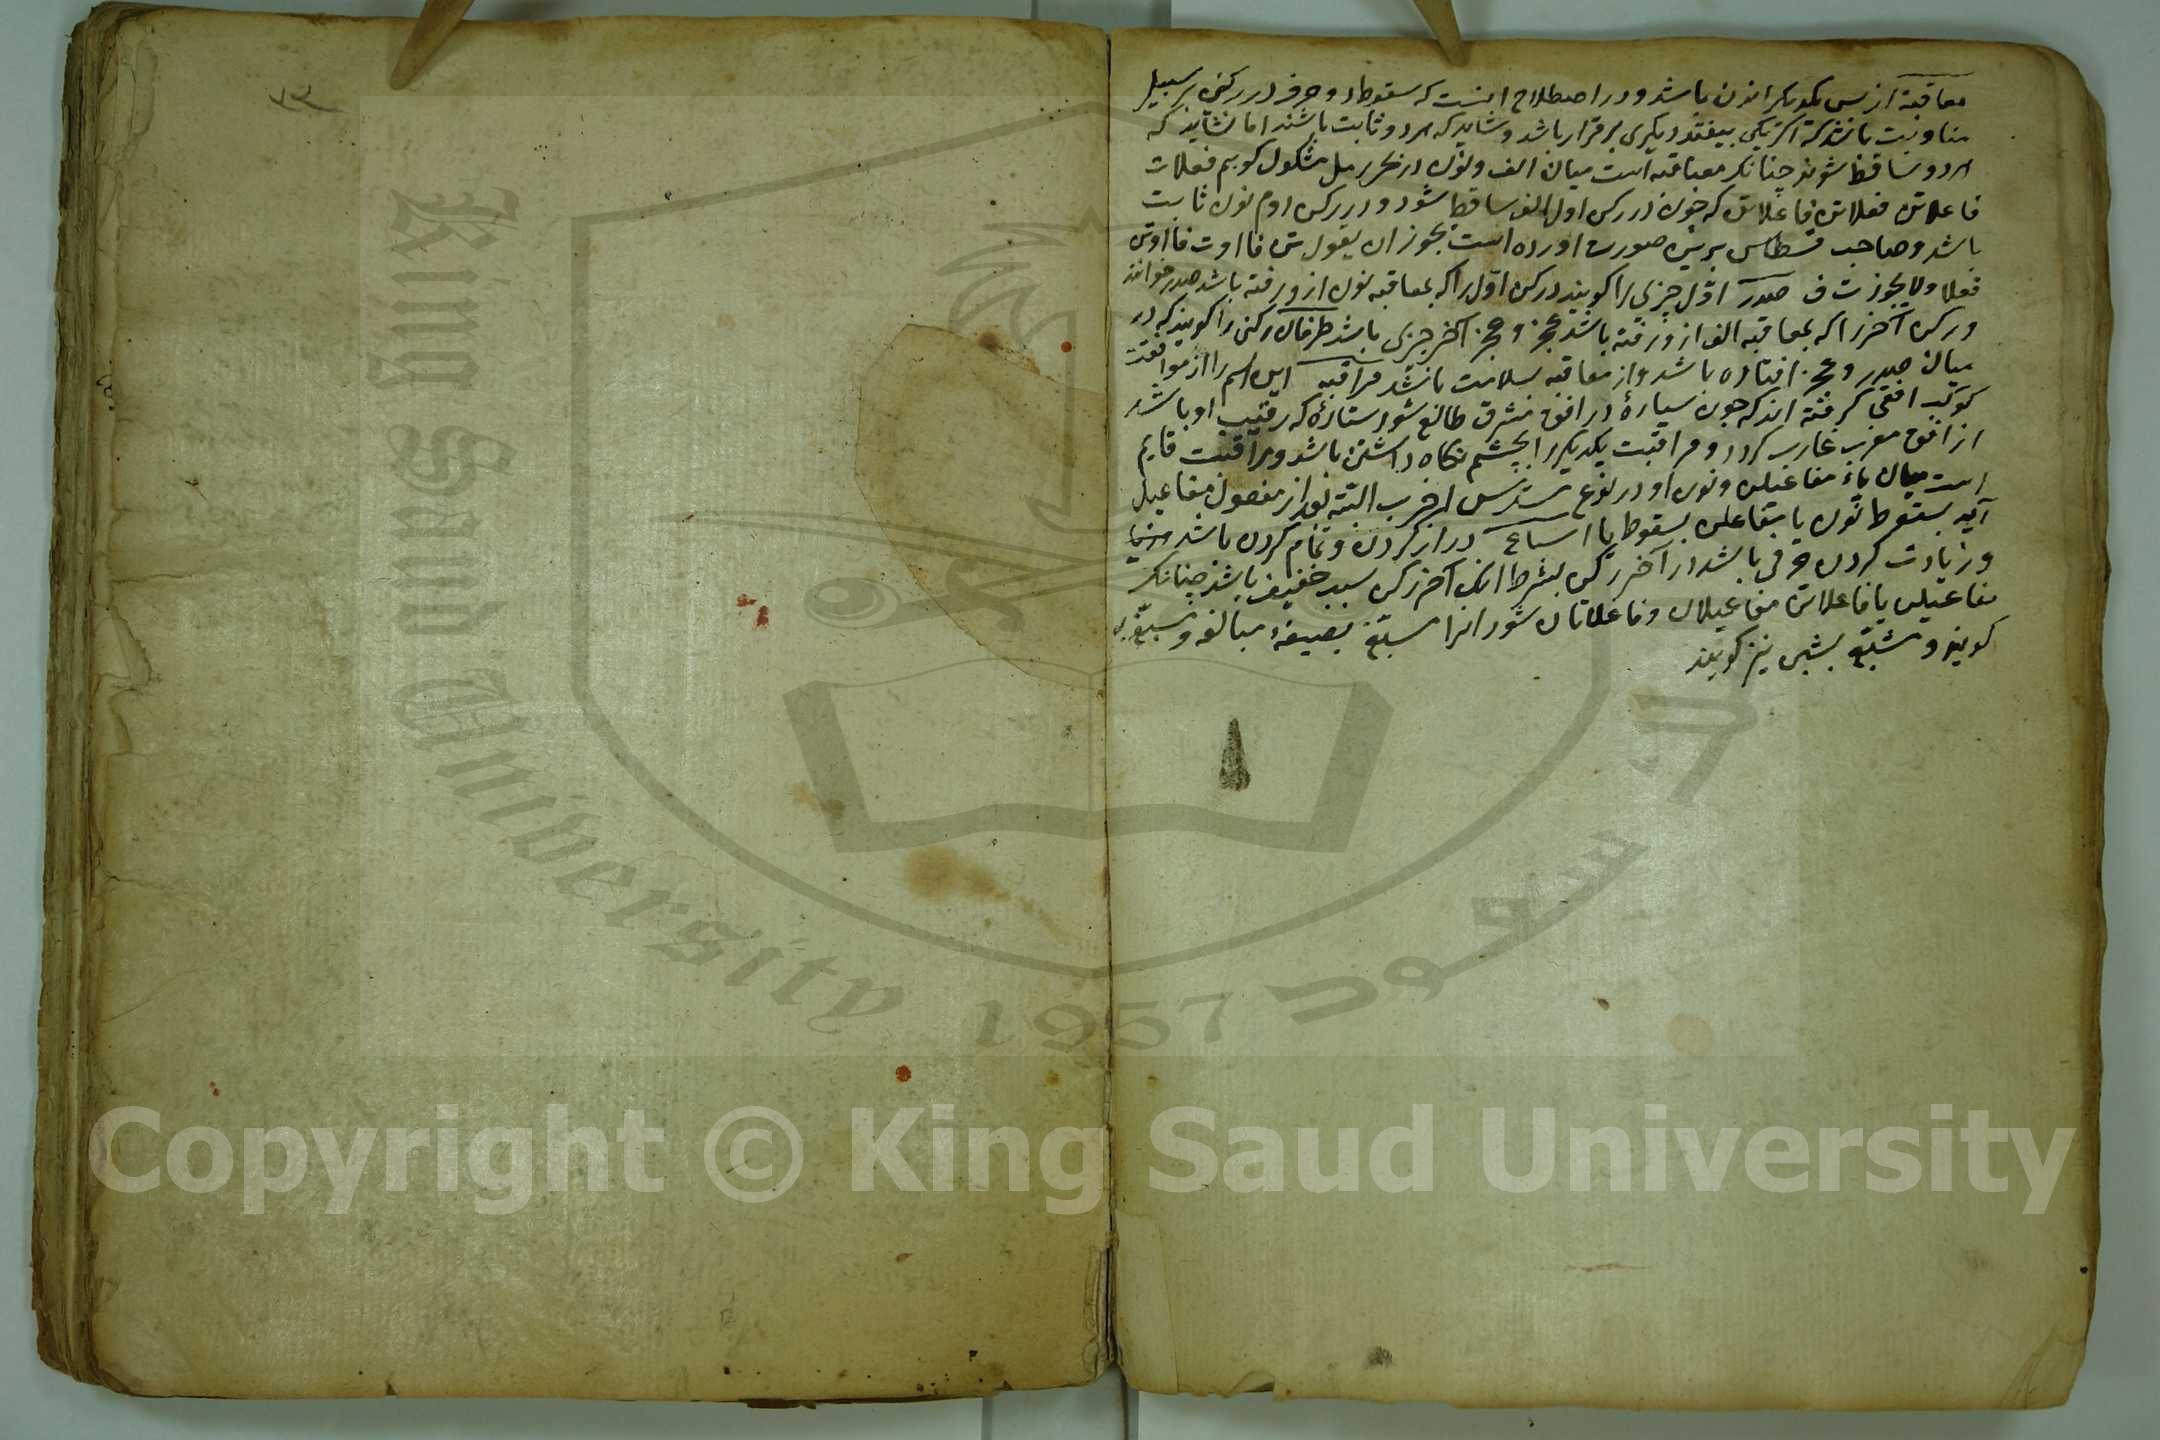 معاقبة از پس یکدیگر آمدن باشد و در اصطلاح آنست که سقوط دو حرف در رکنی بر سبیل
مناوبت باشد که اگر یکی بیفتد دیگری برقرار باشد و شاید که هر دو ثابت باشند اما نشاید که
هر دو ساقط شوند چنانکه معاقبه است میان الف و نون در بحر رمل مشکول گویم فعلات
فاعلاتن فعلاتن فاعلاتن که چون در رکن اول الف ساقط شود و در رکن دوم نون ثابت
باشد و صاحب قسطاس برین صورت آورده است یجوز ان یقول تن فا او ت فا او تن
فعلا و لا یجوز ت ف صدر اول چیزی را گویند در رکن اول را که بمعاقبه نون ازو رفته باشد صدر خوانند
و رکن آخر را که بمعاقبه الف ازو رفته باشد عجز و عجز آخر چیزی باشد طرفان رکنی را گویند که در
میان صدر و عجز افتاده باشد و از معاقبه سلامت باشد مراقبه این اسم را از مراقبت
کوکب افقی گرفته اند که چون سیارهٔ در افق مشرق طالع شود ستارهٔ که رقیب او باشد
از افق مغرب غارب گردد و مراقبت یکدیگر را بچشم نگاه داشتن باشد و مراقبت قایم
است میان یاء مفاعیلن و نون او در نوع مسدس اخرب البته بود از مفعول مفاعیل
آید بسقوط نون یا مفاعلن بسقوط یا اسباغ دراز کردن و تمام کردن باشد
و زیادت کردن حرفی باشد در آخر رکن بشرط آنک آخر رکن سبب خفیف باشد چنانک
مفاعیلن یا فاعلاتن مفاعیلان و فاعلاتان شود آنرا مسبّغ بصیغهٔ مبالغه و مسبّغ
گویند و مشبّع بشین نیز گویند
King Saud University
1957
Copyright © King Saud University